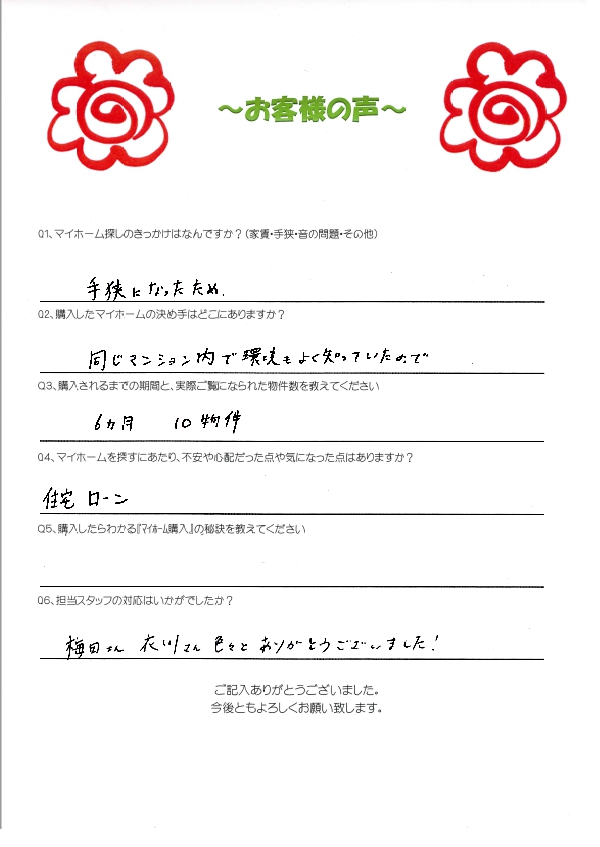 ～お客様の声～
Q1、マイホーム探しのきっかけはなんですか？（家賃・手狭・音の問題・その他）
手狭になったため。
Q2、購入したマイホームの決め手はどこにありますか？
同じマンション内で環境もよく知っていたので
Q3、購入されるまでの期間と、実際ご覧になられた物件数を教えてください
6ヵ月　10物件
Q4、マイホームを探すにあたり、不安や心配だった点や気になった点はありますか？
住宅ローン
Q5、購入したらわかる『マイホーム購入』の秘訣を教えてください
Q6、担当スタッフの対応はいかがでしたか？
梅田さん 衣川さん 色々とありがとうございました！
ご記入ありがとうございました。
今後ともよろしくお願い致します。